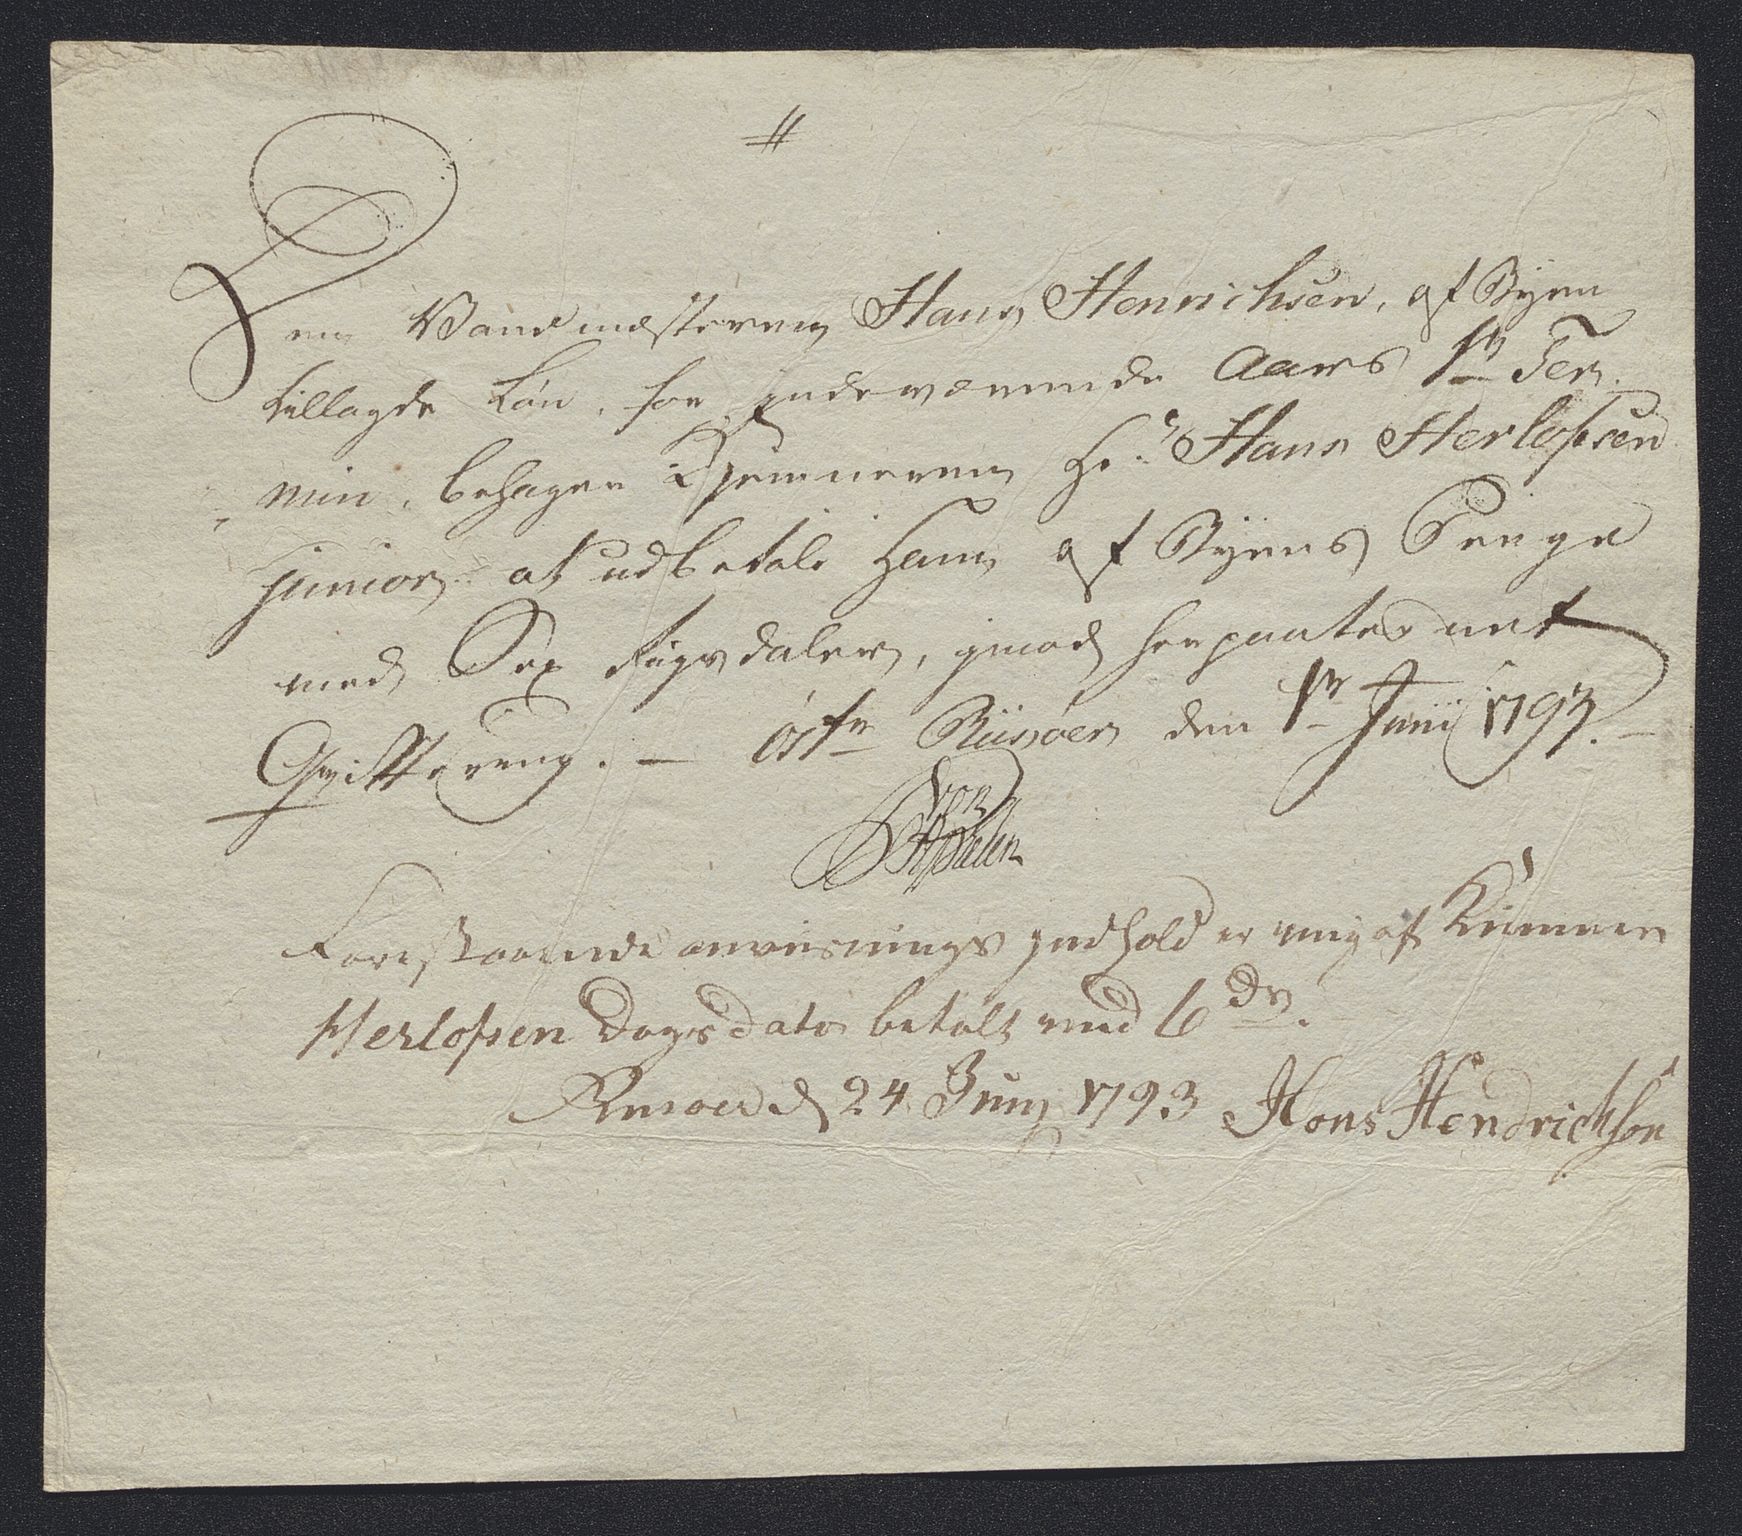 #
Den Vandmesteren Hans Henrichsen, af Byen
tillagde Løn, for indeværende Aars 1te Ter-
min, behager Kjemneren Hr. Hans Herlofsen
junior at udbetale ham af Byens Penge
med Sex Rigsdaler, imod paategnet
Qvittering. — Östr Riisöer den 1te Junii 1793. —
von
Forestaaende anvisnings indhold er mig af Kiemner
Herlofsen Dags dato betalt med 6 dr.
Riisöer d 24 Juny 1793 Hans Hendrichsen